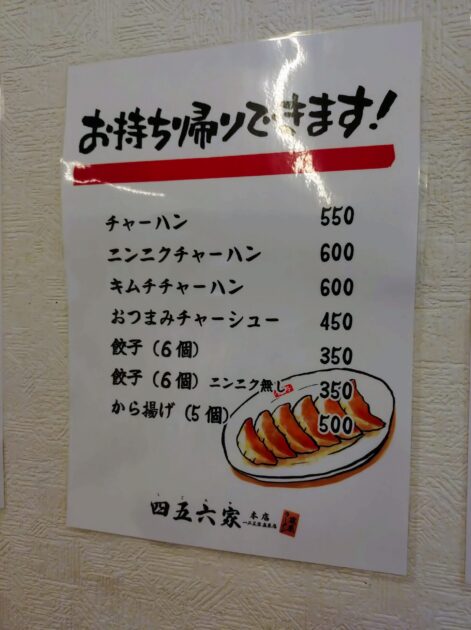 お持ち帰りできます!
チャーハン 550
ニンニクチャーハン 600
キムチチャーハン 600
おつまみチャーシュー 450
餃子(6個) 350
餃子(6個)ニンニク無し 350
から揚げ(5個) 500
四五六家 本店